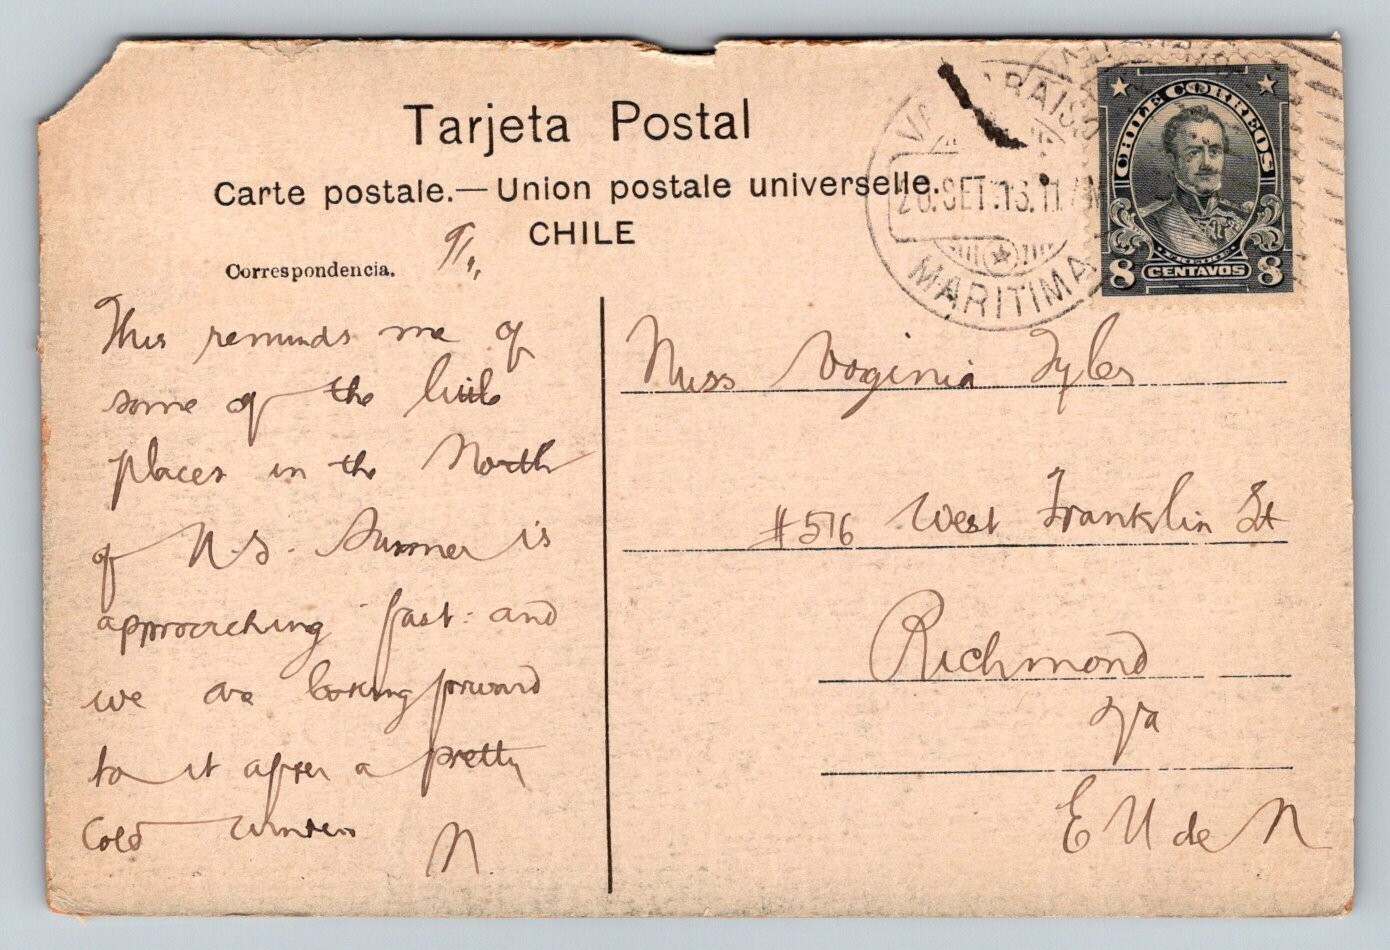 Tarjeta Postal
Carte postale.—Union postale universelle.
CHILE
Correspondencia.
This reminds me of
some of the little
places in the North
of N.S. Summer is
approaching fast: and
we are looking forward
to it after a pretty
Cold winter
N
VALPARAISO
SET.
MARITIMA
CHILE CORREOS
FREIRE
8 CENTAVOS 8
Miss Virginia Tyler
#516 West Franklin St
Richmond
Va
E U de N